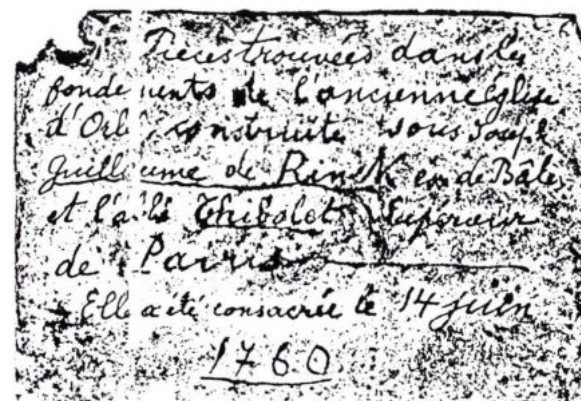 Pièces trouvées dans les
fondements de l'ancienne Église
d'Orbey construite sous Joseph
Guillaume de Rinck év. de Bâle,
et l'abbé Thibolet Supérieur
de Pairis
Elle a été consacrée le 14 juin
1760